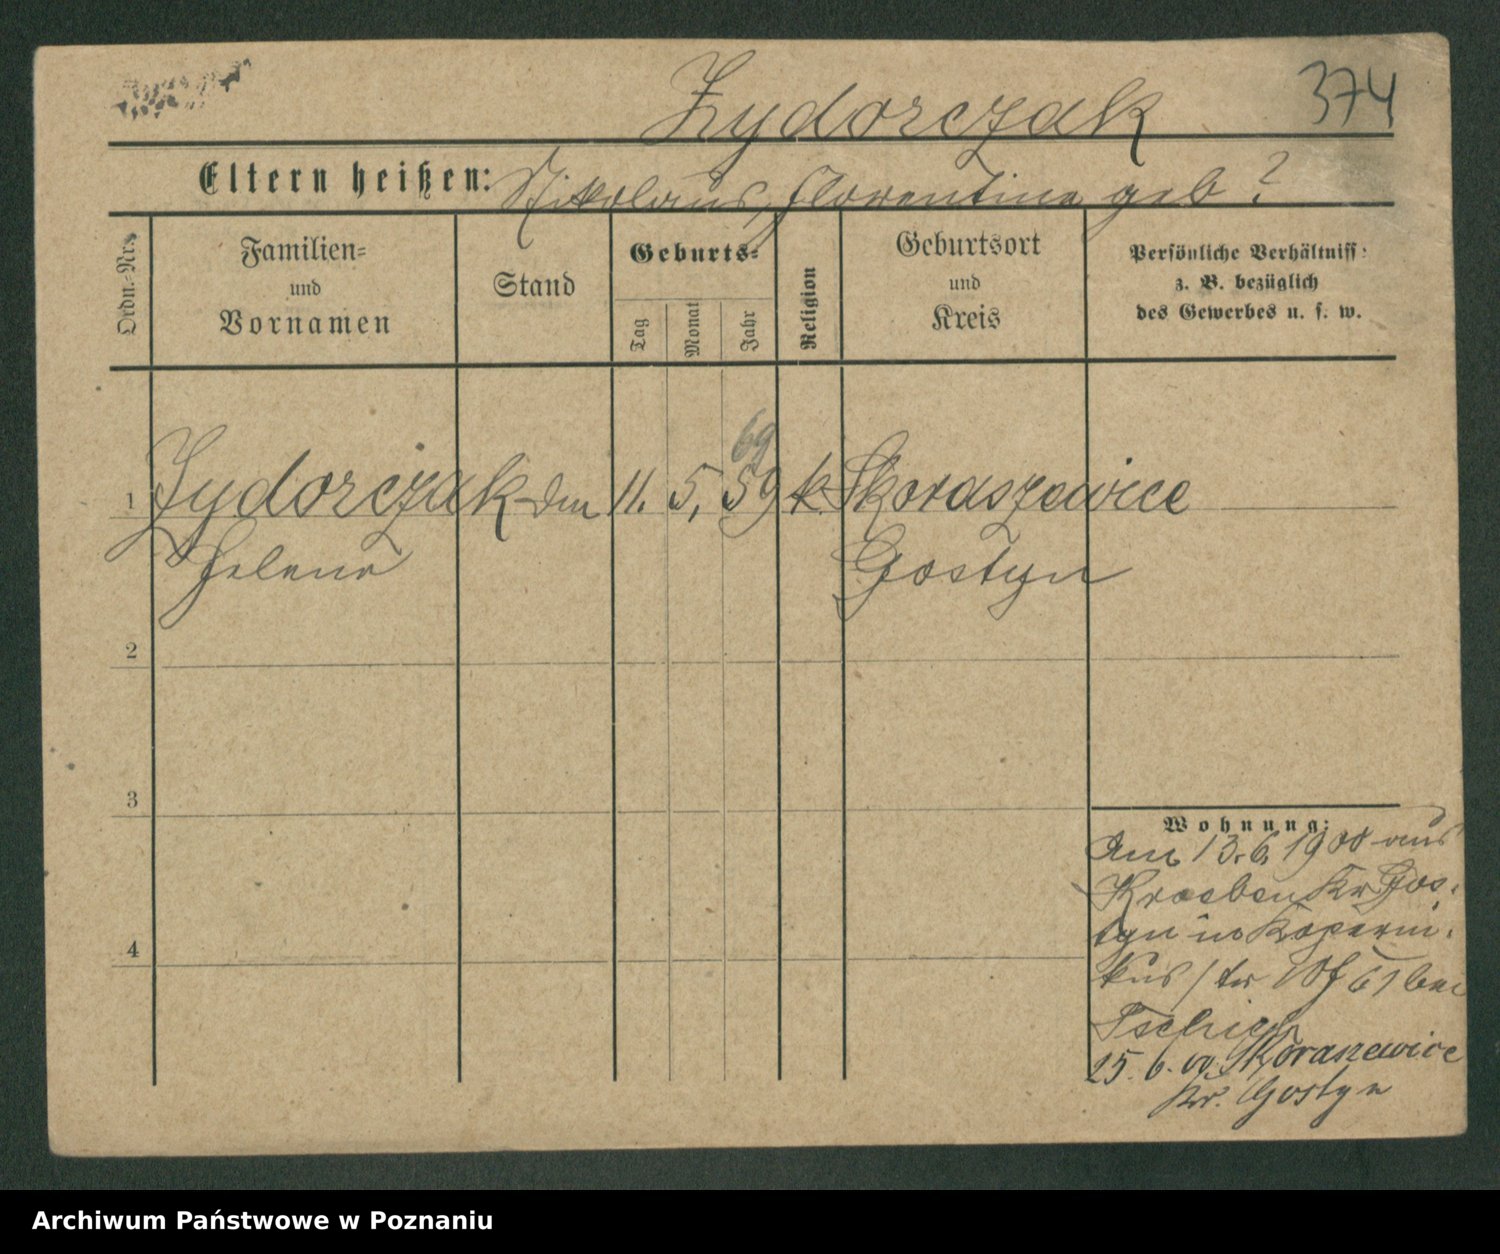 374
Zydorczak
Eltern heißen: Nikolaus, Florentine geb ?
Ordn.-Nr.
Familien-
und
Vornamen
Stand
Geburts-
Tag
Monat
Jahr
Religion
Geburtsort
und
Kreis
Persönliche Verhältniss
z. B. bezüglich
des Gewerbes u. s. w.
69
1 Zydorczak 11. 5. 59 k. Skoraszewice
Helene Gostyn
2
3
4
Wohnung:
Am 13.6.1900 aus
Kroeben Kr Gos-
tyn in Koperni-
kus/str 61 bei
25.6.00 Skoraszewice
Kr. Gostyn
Archiwum Państwowe w Poznaniu